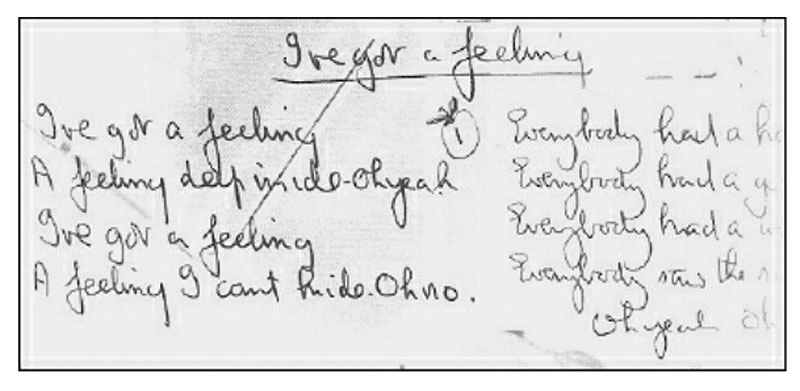 Ive got a feeling
Ive got a feeling
A feeling deep inside-Oh yeah
Ive got a feeling
A feeling I cant hide. Oh no.
1
Everybody had a
Everybody had a
Everybody had a
Everybody saw the
Oh yeah Oh